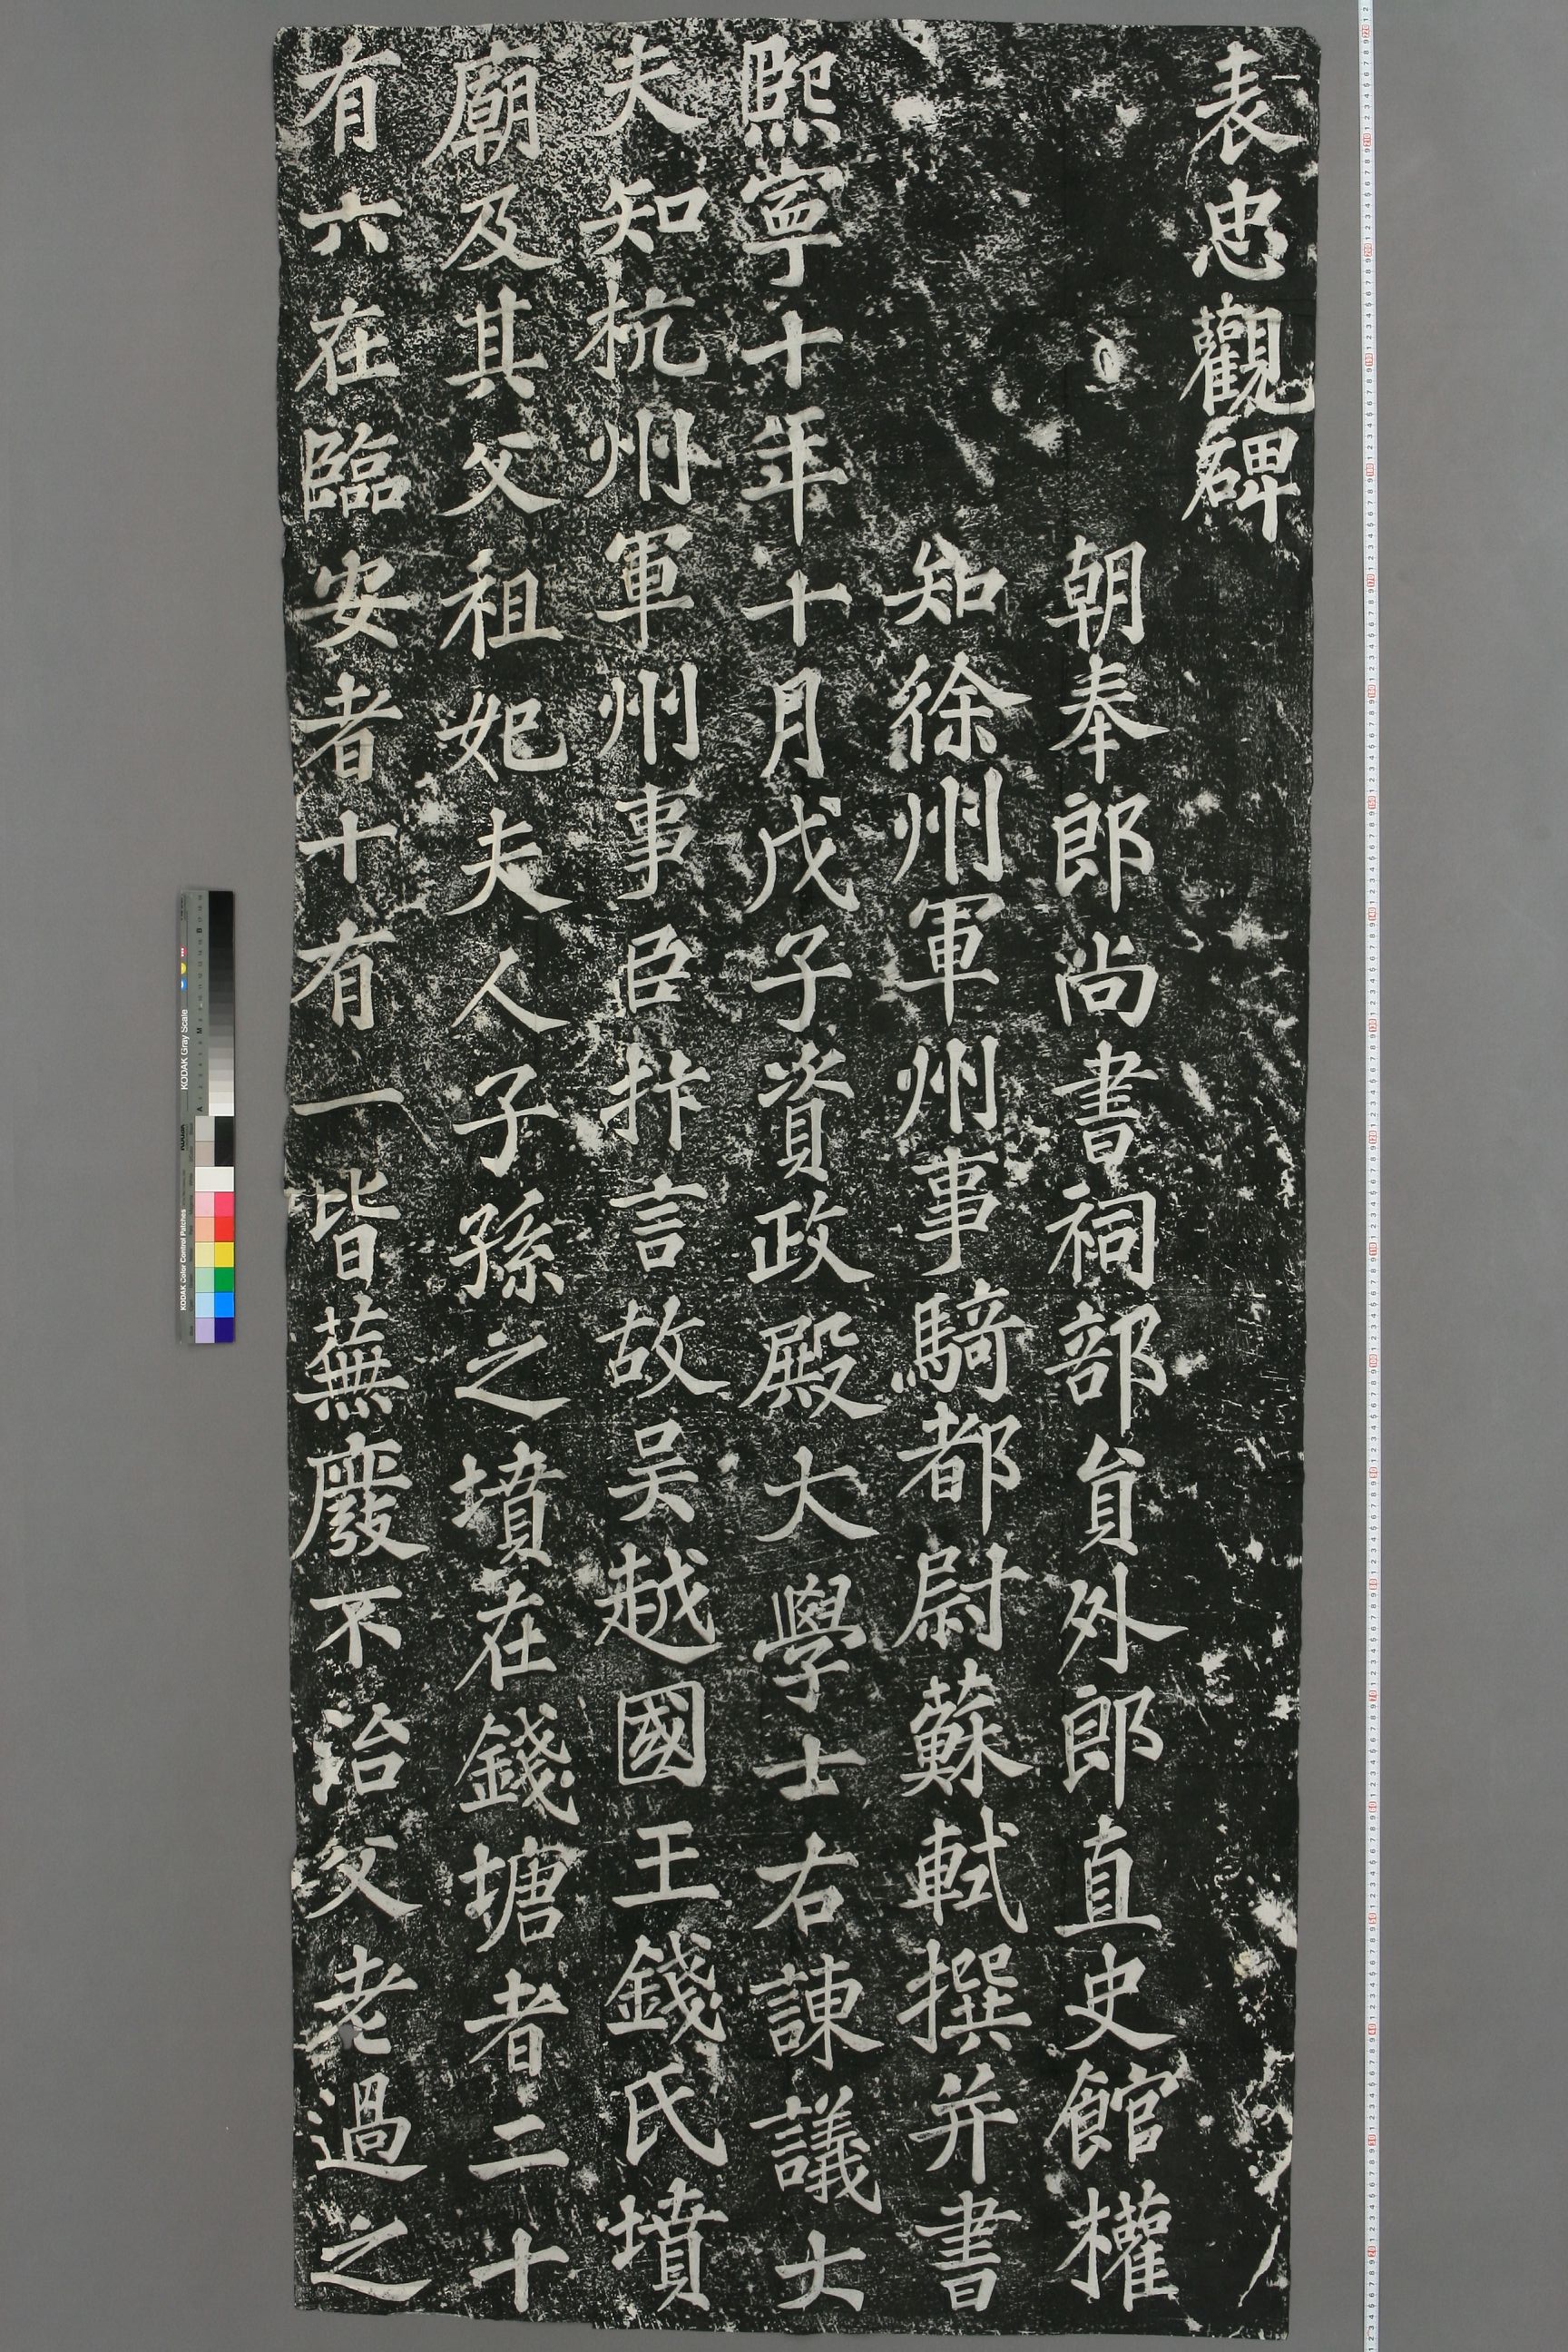 表忠觀碑
朝奉郎尚書祠部貟外郎直史館權
知徐州軍州事騎都尉蘇軾撰并書
熙寧十年十月戊子資政殿大學士右諫議大
夫知杭州軍州事臣抃言故吴越國王錢氏墳
廟及其父祖妃夫人子孫之墳在錢塘者二十
有六在臨安者十有一皆蕪廢不治父老過之